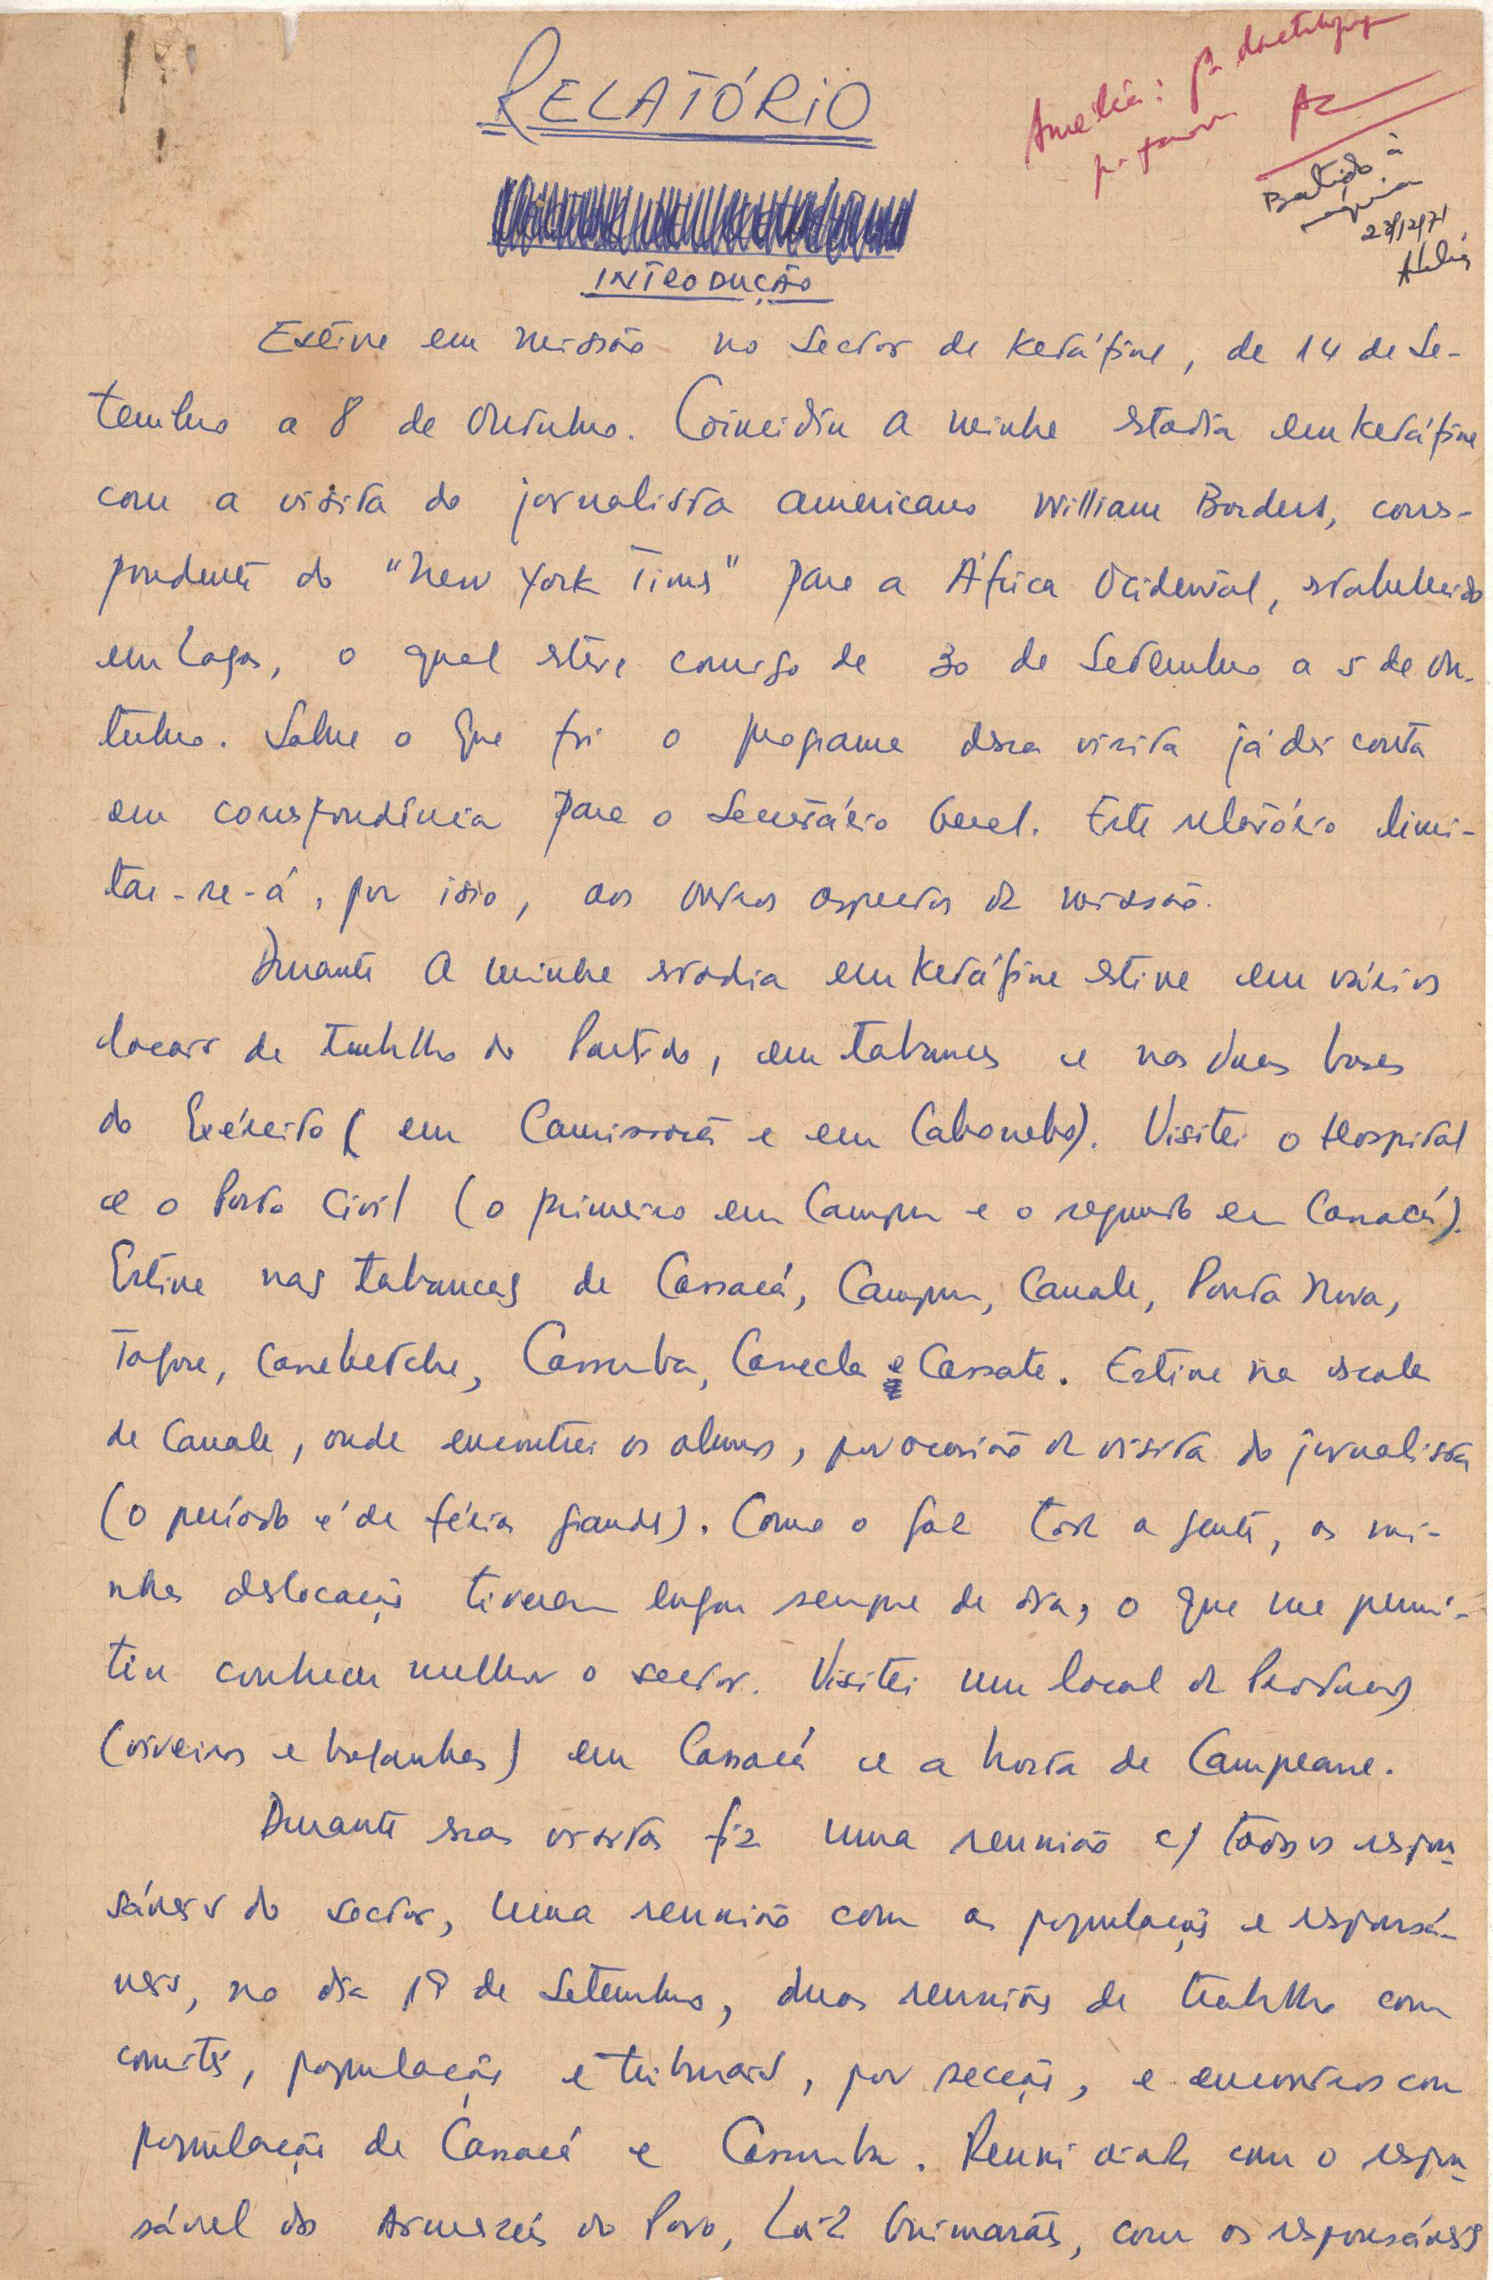 RELATÓRIO
Amélia: pª
AC
Batido à
máquina
23/12/71
INTRODUÇÃO
Estive em missão no Sector de Ketáfine, de 14 de Se-
tembro a 8 de Outubro. Coincidiu a minha estadia em Ketáfine
com a visita do jornalista americano William Borders, corres-
pondente do "New York Times" para a África Ocidental, estabelecido
em Lagos, o qual esteve comigo de 30 de Setembro a 5 de Ou-
tubro. Sobre o que foi o programa dessa visita já dei conta
em correspondência para o Secretário Geral. Este relatório limi-
tar-se-á, por isso, aos outros aspectos da missão.
Durante a minha estadia em Ketáfine estive em vários
locais de trabalho do Partido, em tabancas e nas duas bases
do Exército (em Camissorã e em Cabonebo). Visitei o Hospital
e o Posto Civil (o primeiro em Campu e o segundo em Cassacá).
Estive nas tabancas de Cassacá, Campu, Canale, Ponta Nova,
Tafore, Canebetche, Cassumba, Canecla e Cassate. Estive na escola
de Canale, onde encontrei os alunos, por ocasião da visita do jornalista
(o período é de férias grandes). Como o fae toda a gente, as mi-
nhas deslocações tiveram lugar sempre de dia, o que me permi-
tiu conhecer melhor o sector. Visitei um local de Produção
(viveiros e bolanhas) em Cassacá e a horta de Campeane.
Durante essas visitas fiz uma reunião c/ todos os respon-
sáveis do sector, uma reunião com as populações e responsá-
veis, no dia 19 de Setembro, duas reuniões de trabalho com
comités, populações e tribunais, por secções, e encontros com
populações de Cassacá e Cassumba. Reuni ainda com o respon-
sável dos Armazéns do Povo, Luiz Guimarães, com os responsáveis